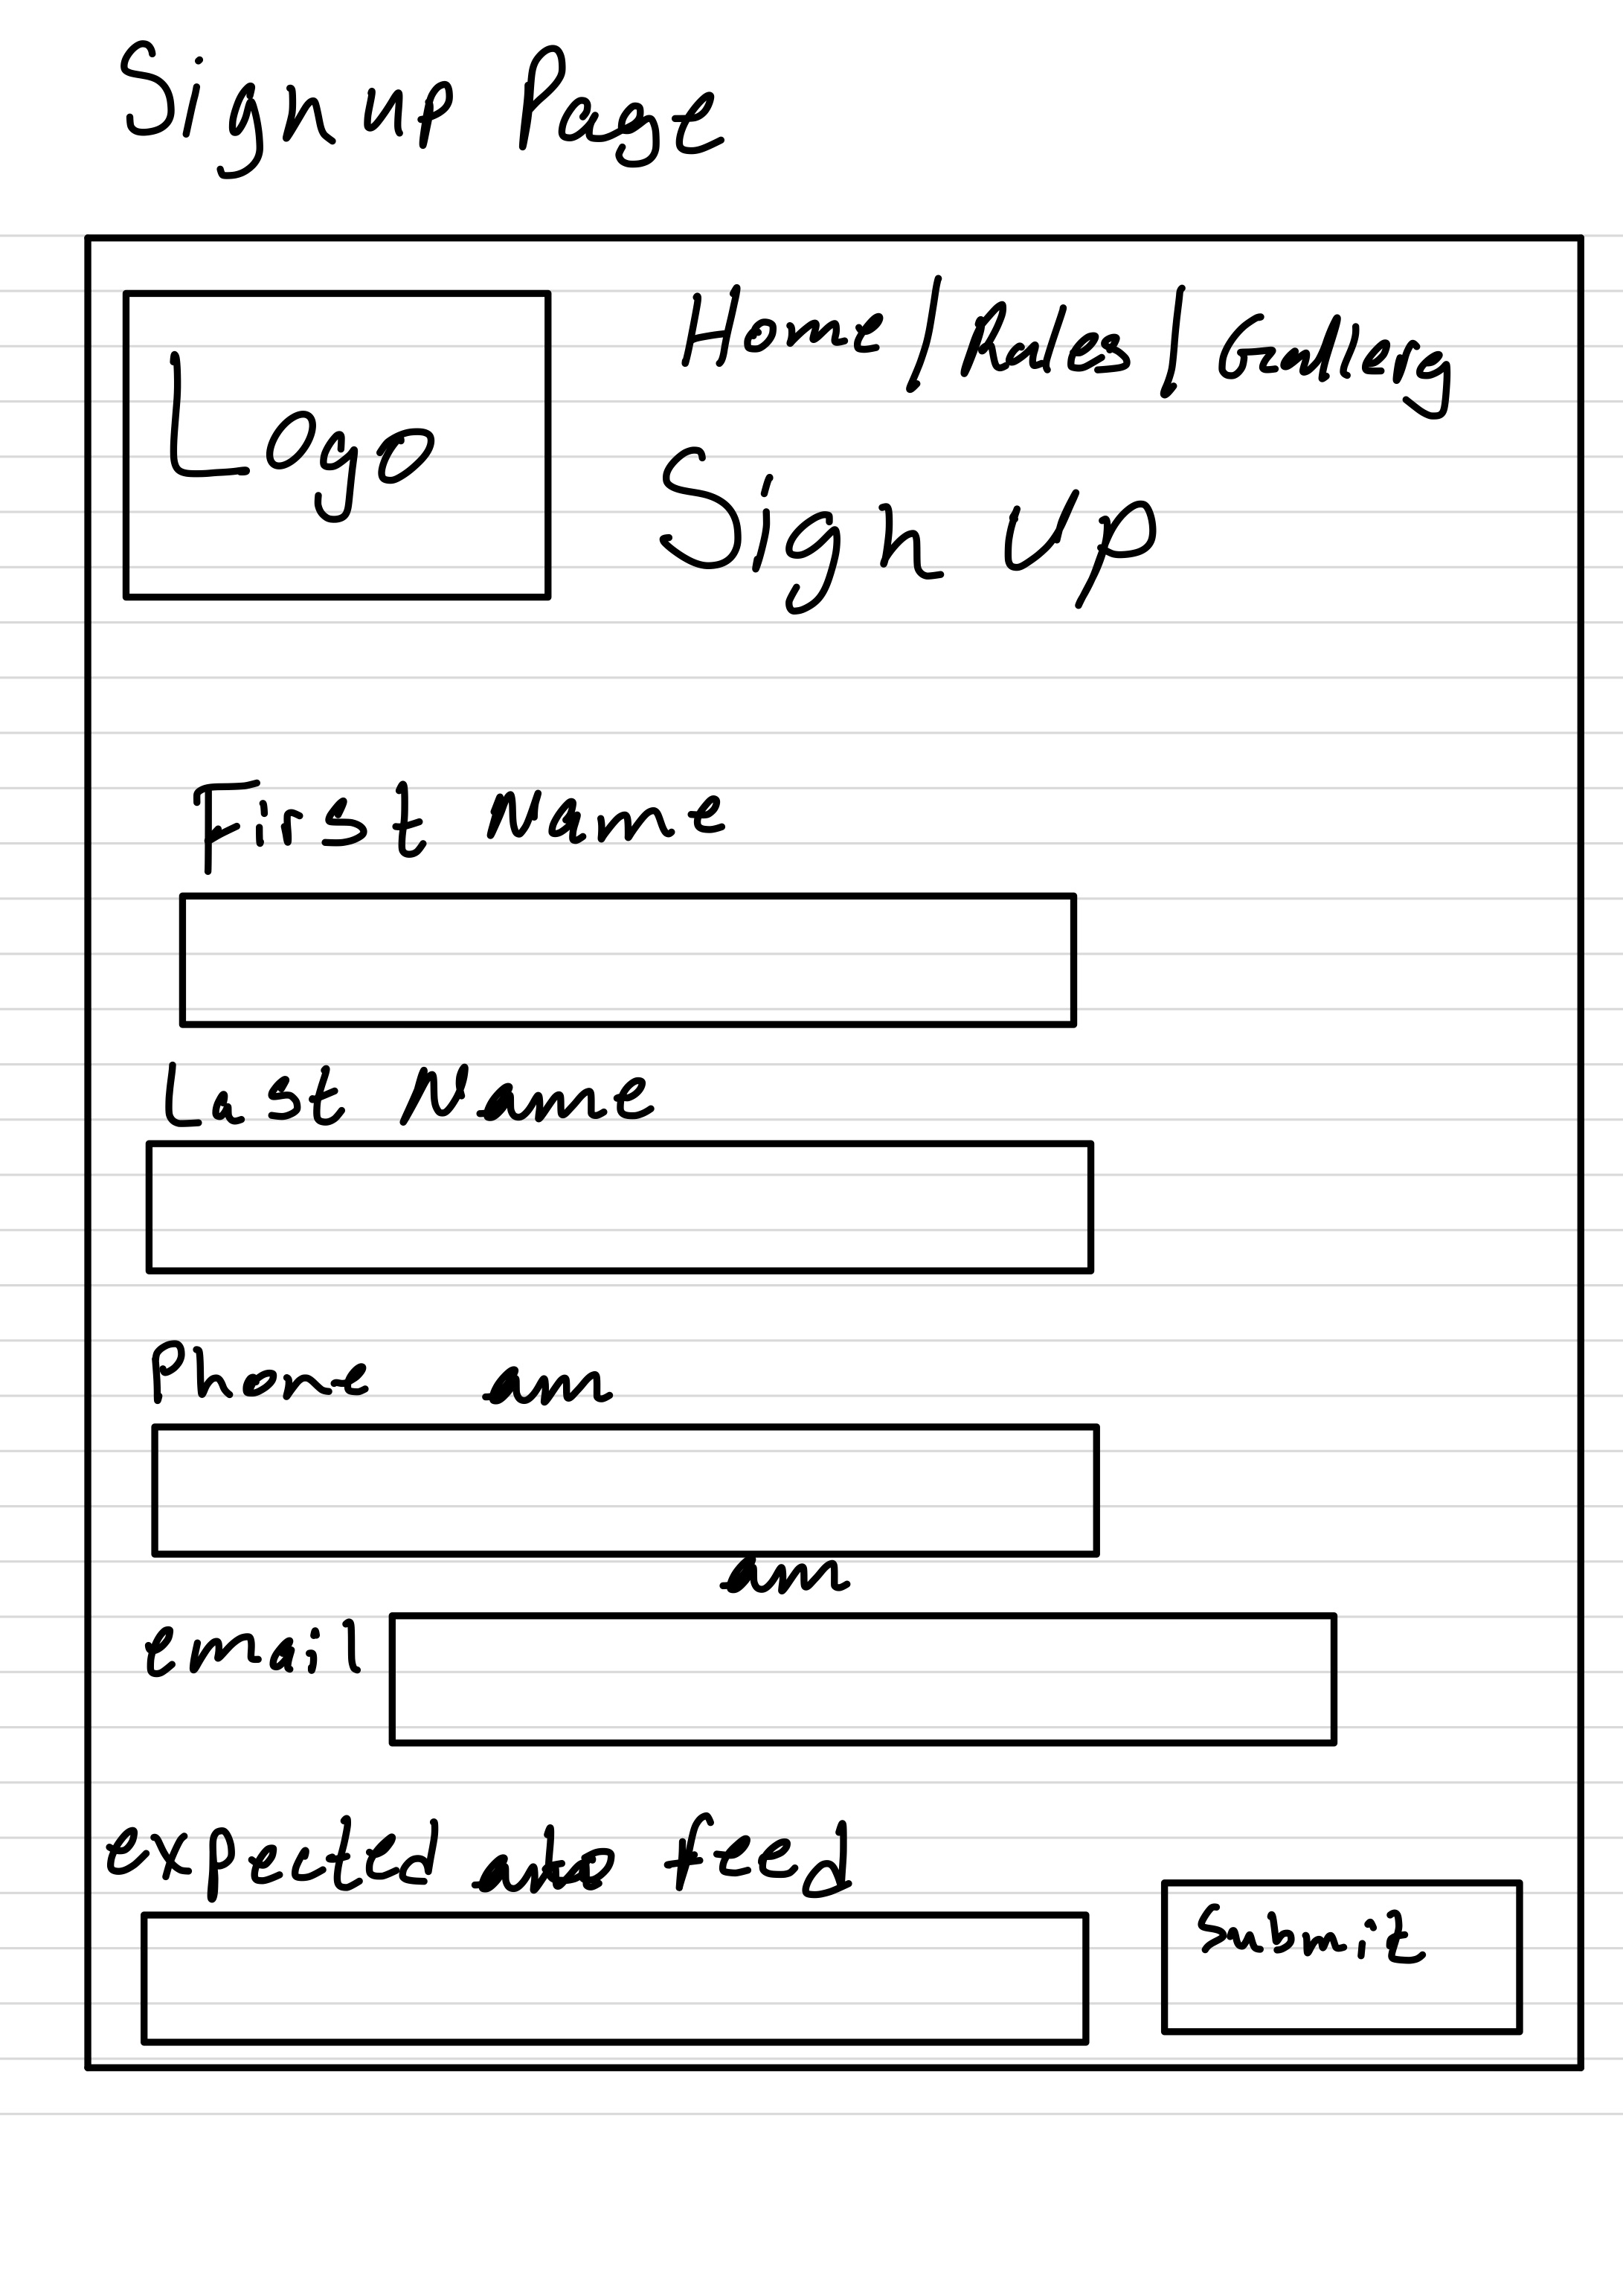 Sign up Page
Home / Rules / Gallery
Logo
Sign Up
First Name
Last Name
Phone am
am
email
expected feed
Submit